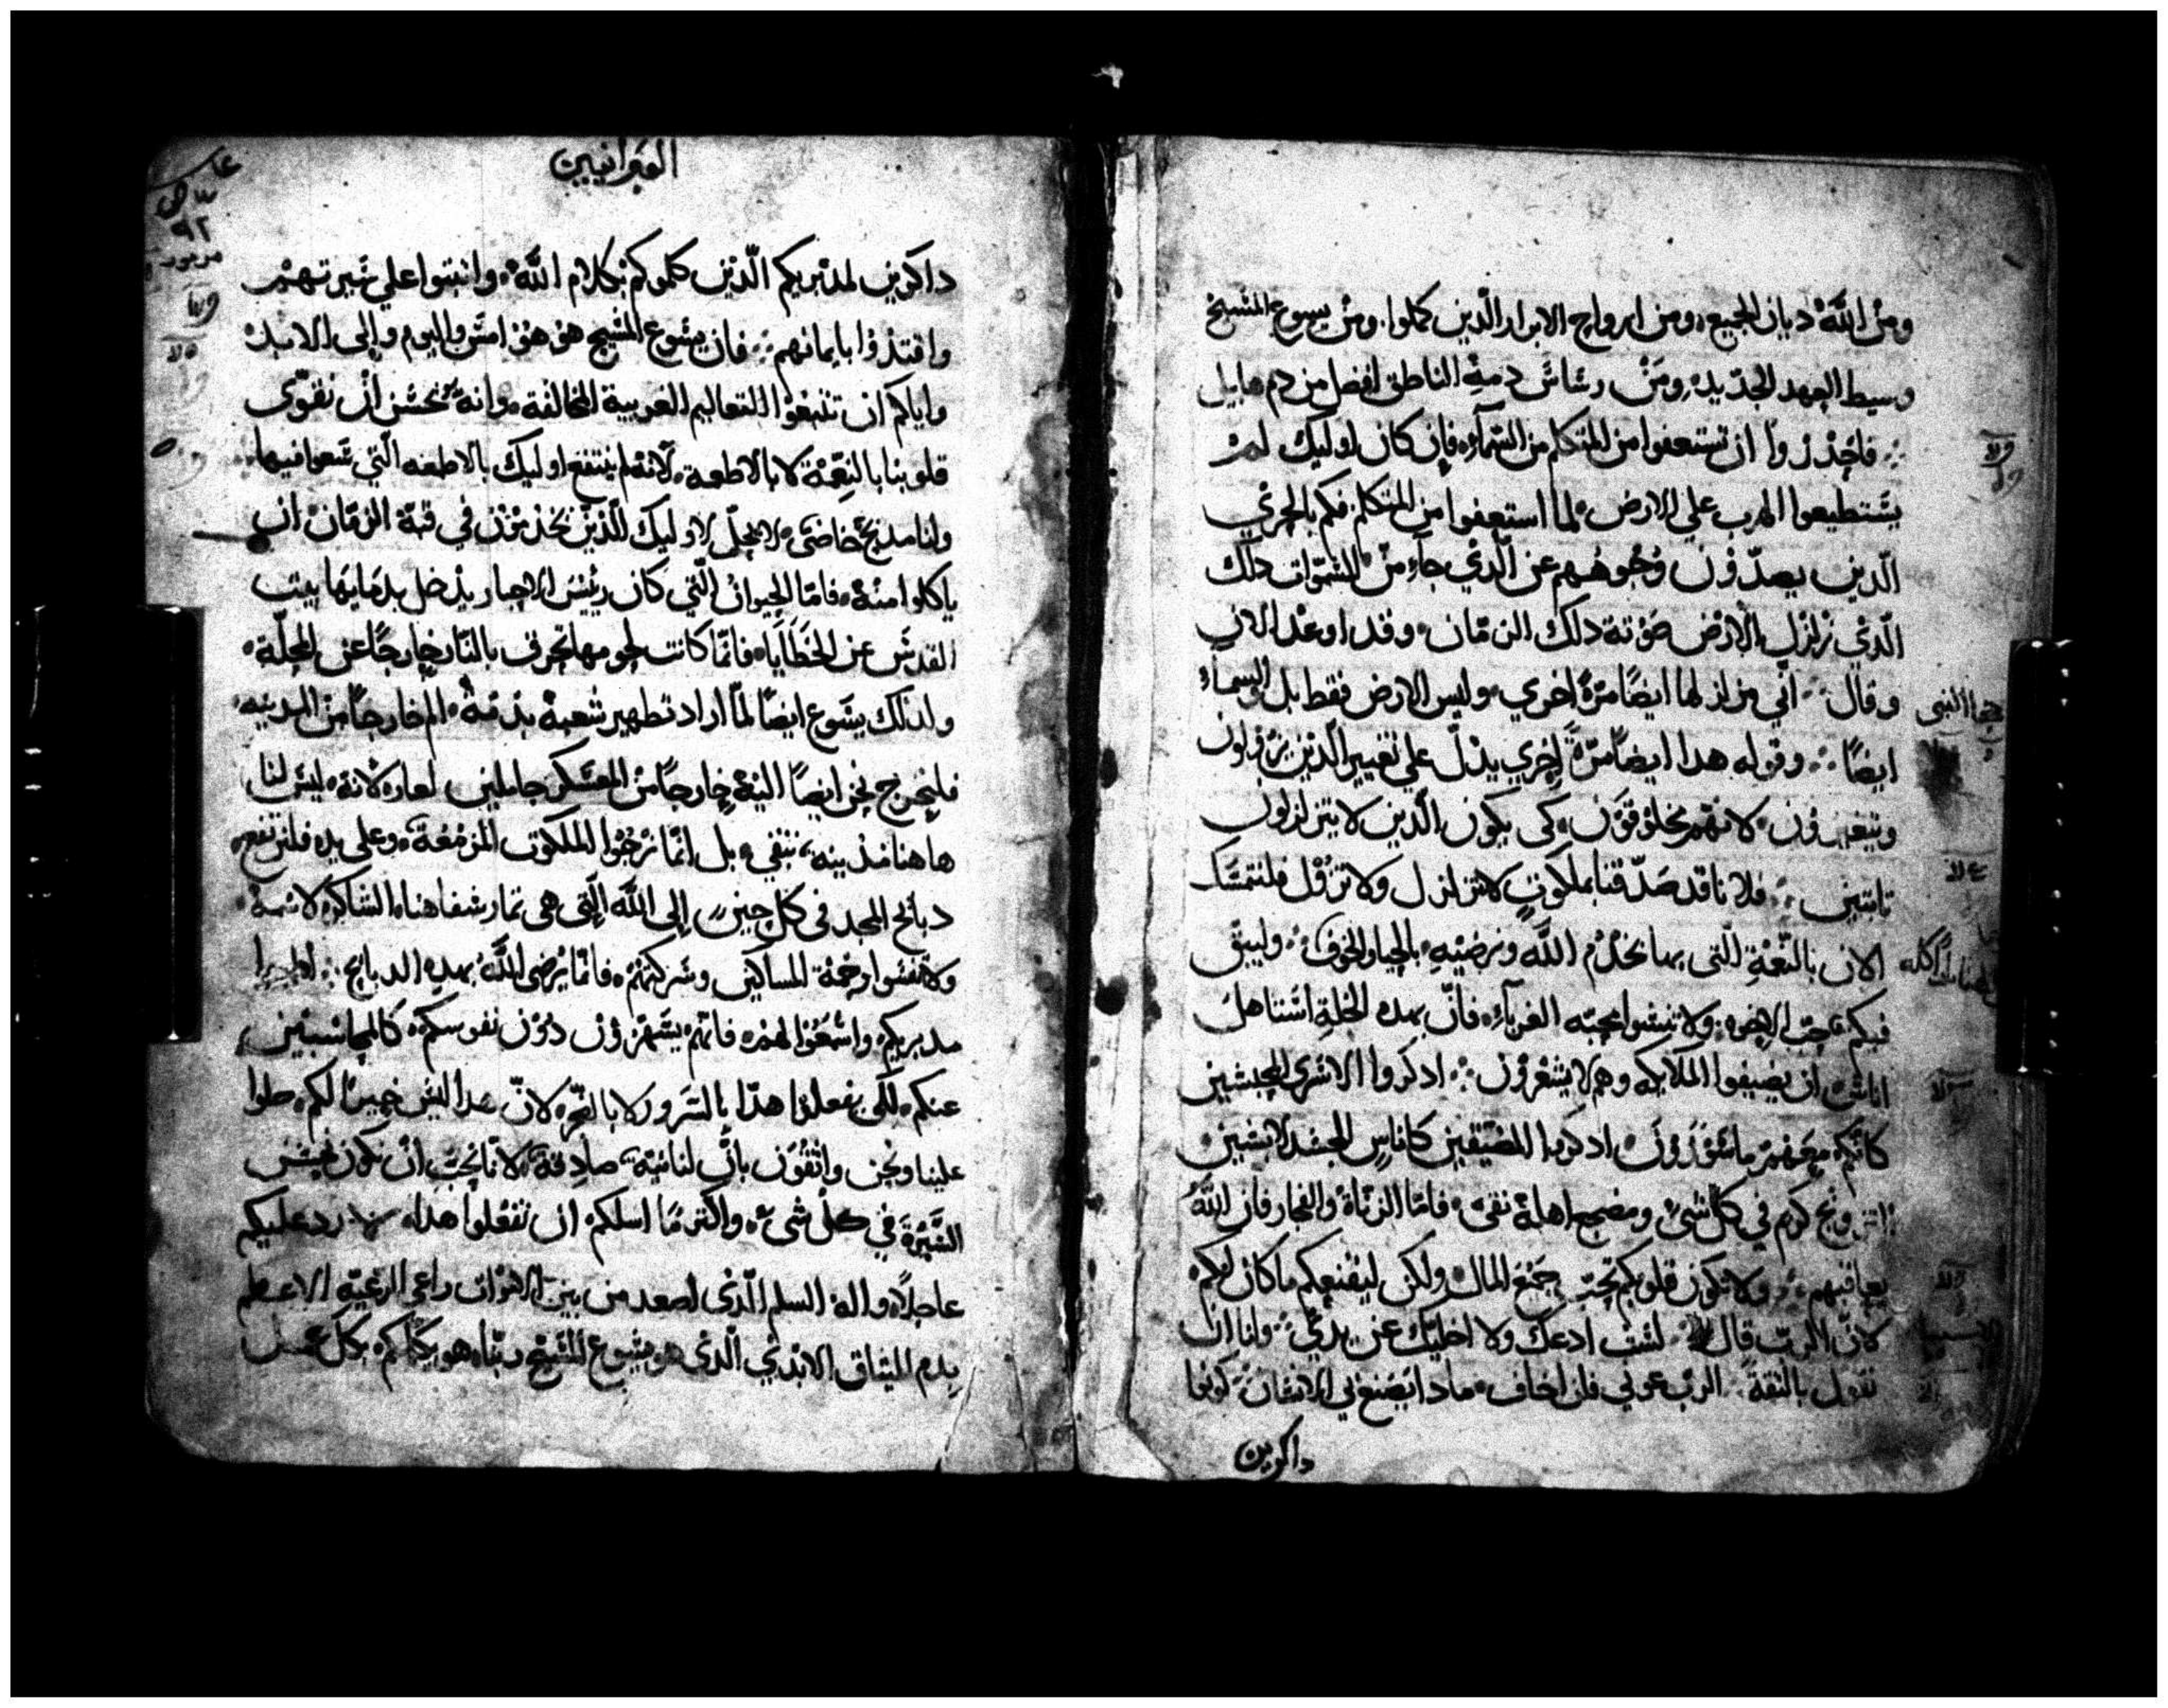 ومن الله ديان الجميع ومن ارواح الابرار الذين كملوا ومن يسوع المسيح
وسيط العهد الجديد ومن رشاش دمه الناطق افضل من دم هابيل
فاحذروا ان تستعفوا من المتكلم من السماء فان كان اوليك لم
يستطيعوا الهرب علي الارض لما استعفوا من المتكلم فكم بالحري
الذين يصدون وجوههم عن الذي جاء من السموات دلك
الذي زلزل الارض صوته دلك الزمان وقد اوعد الان
وقال اني مزلزلها ايضا مرة اخري وليس الارض فقط بل والسماء
ايضا وقوله هدا ايضا مرة اخري يدل علي تغيير الذين يزولون
ويتغيرون لانهم مخلوقون كي يكون الذين لا يتزلزلون
تابتين فلاناقد صدقنا بملكوت لا تتزلزل ولا تزول فلنتمسك
الان بالنعمة التي بها نخدم الله ونرضيه بالحيا والخوف وليبق
فيكم حب الاخوه ولا تنسوا محبه الغرباء فان بهده الخلة استاهل
اناس ان يضيفوا الملايكه وهم لا يشعرون ادكروا الاسري المحبسين
كانكم معهم ماسورون ادكروا المضيقين كاناس الجسد لابسين
التزويج كرم في كل شي ومضجع اهله نقي فاما الزناة والفجار فان الله
يعاقبهم ولا تكون قلوبكم تحب جمع المال ولكن ليقنعكم ما كان لكم
لان الرب قال لست ادعك ولا اخليك عن يدي ولنا ان
نقول بالثقة الرب عوني فلن اخاف مادا يصنع بي الانسان كونوا
داكرين
حجا النبي
العبرانيين
داكرين لمدبريكم الذين كلموكم بكلام الله واثبتوا علي خبرتهم
واقتدوا بايمانهم فان يسوع المسيح هو هو امس واليوم والي الابد
واياكم ان تتبعوا التعاليم الغريبة المخالفة وانه يحسن ان نقوي
قلوبنا بالنعمة لا بالاطعمة لانه لم ينتفع اوليك بالاطعمه التي سعوا فيها
ولنا مدبح خاص لا يحل لاوليك الذين يخدمون في قبة الزمان ان
ياكلوا منه فاما الحيوان التي كان رئيس الاحبار يدخل بدمايها بيت
القدس عن الخطايا فانما كانت لحومها تحرق بالنار خارجا عن المحلة
ولدلك يسوع ايضا لما اراد تطهير شعبه بدمه الم خارجا من المدينه
فلنخرج نحن ايضا اليه خارجا من العسكر حاملين لعاره لانه ليس لنا
هاهنا مدينه تبقي بل انما نرجوا الملكوت المزمعة وعلي يده فلنرفع
دبائح المجد في كل حين الي الله التي هي تمار شفاهنا الشاكره لاسمه
ولا تنسوا رحمة المساكين وشركتهم فانما يرضي الله بهده الدبائح اطيعوا
مدبريكم واسمعوا لهم فانهم يسهرون دون نفوسكم كالمحاسبين
عنكم لكي يفعلوا هدا بالسرور لا بالضجر لان هدا ليس خيرا لكم صلوا
علينا ونحن واثقون بان لنا نية صادقة لانا نحب ان نكون نحسن
السيرة في كل شي واكثر ما اسلكم ان تفعلوا هدا لارد عليكم
عاجلا واله السلم الذي اصعد من بين الاموات راعي الرعيه الاعظم
بدم الميتاق الابدي الذي هو يسوع المسيح ربنا هو يكملكم بكل عمل